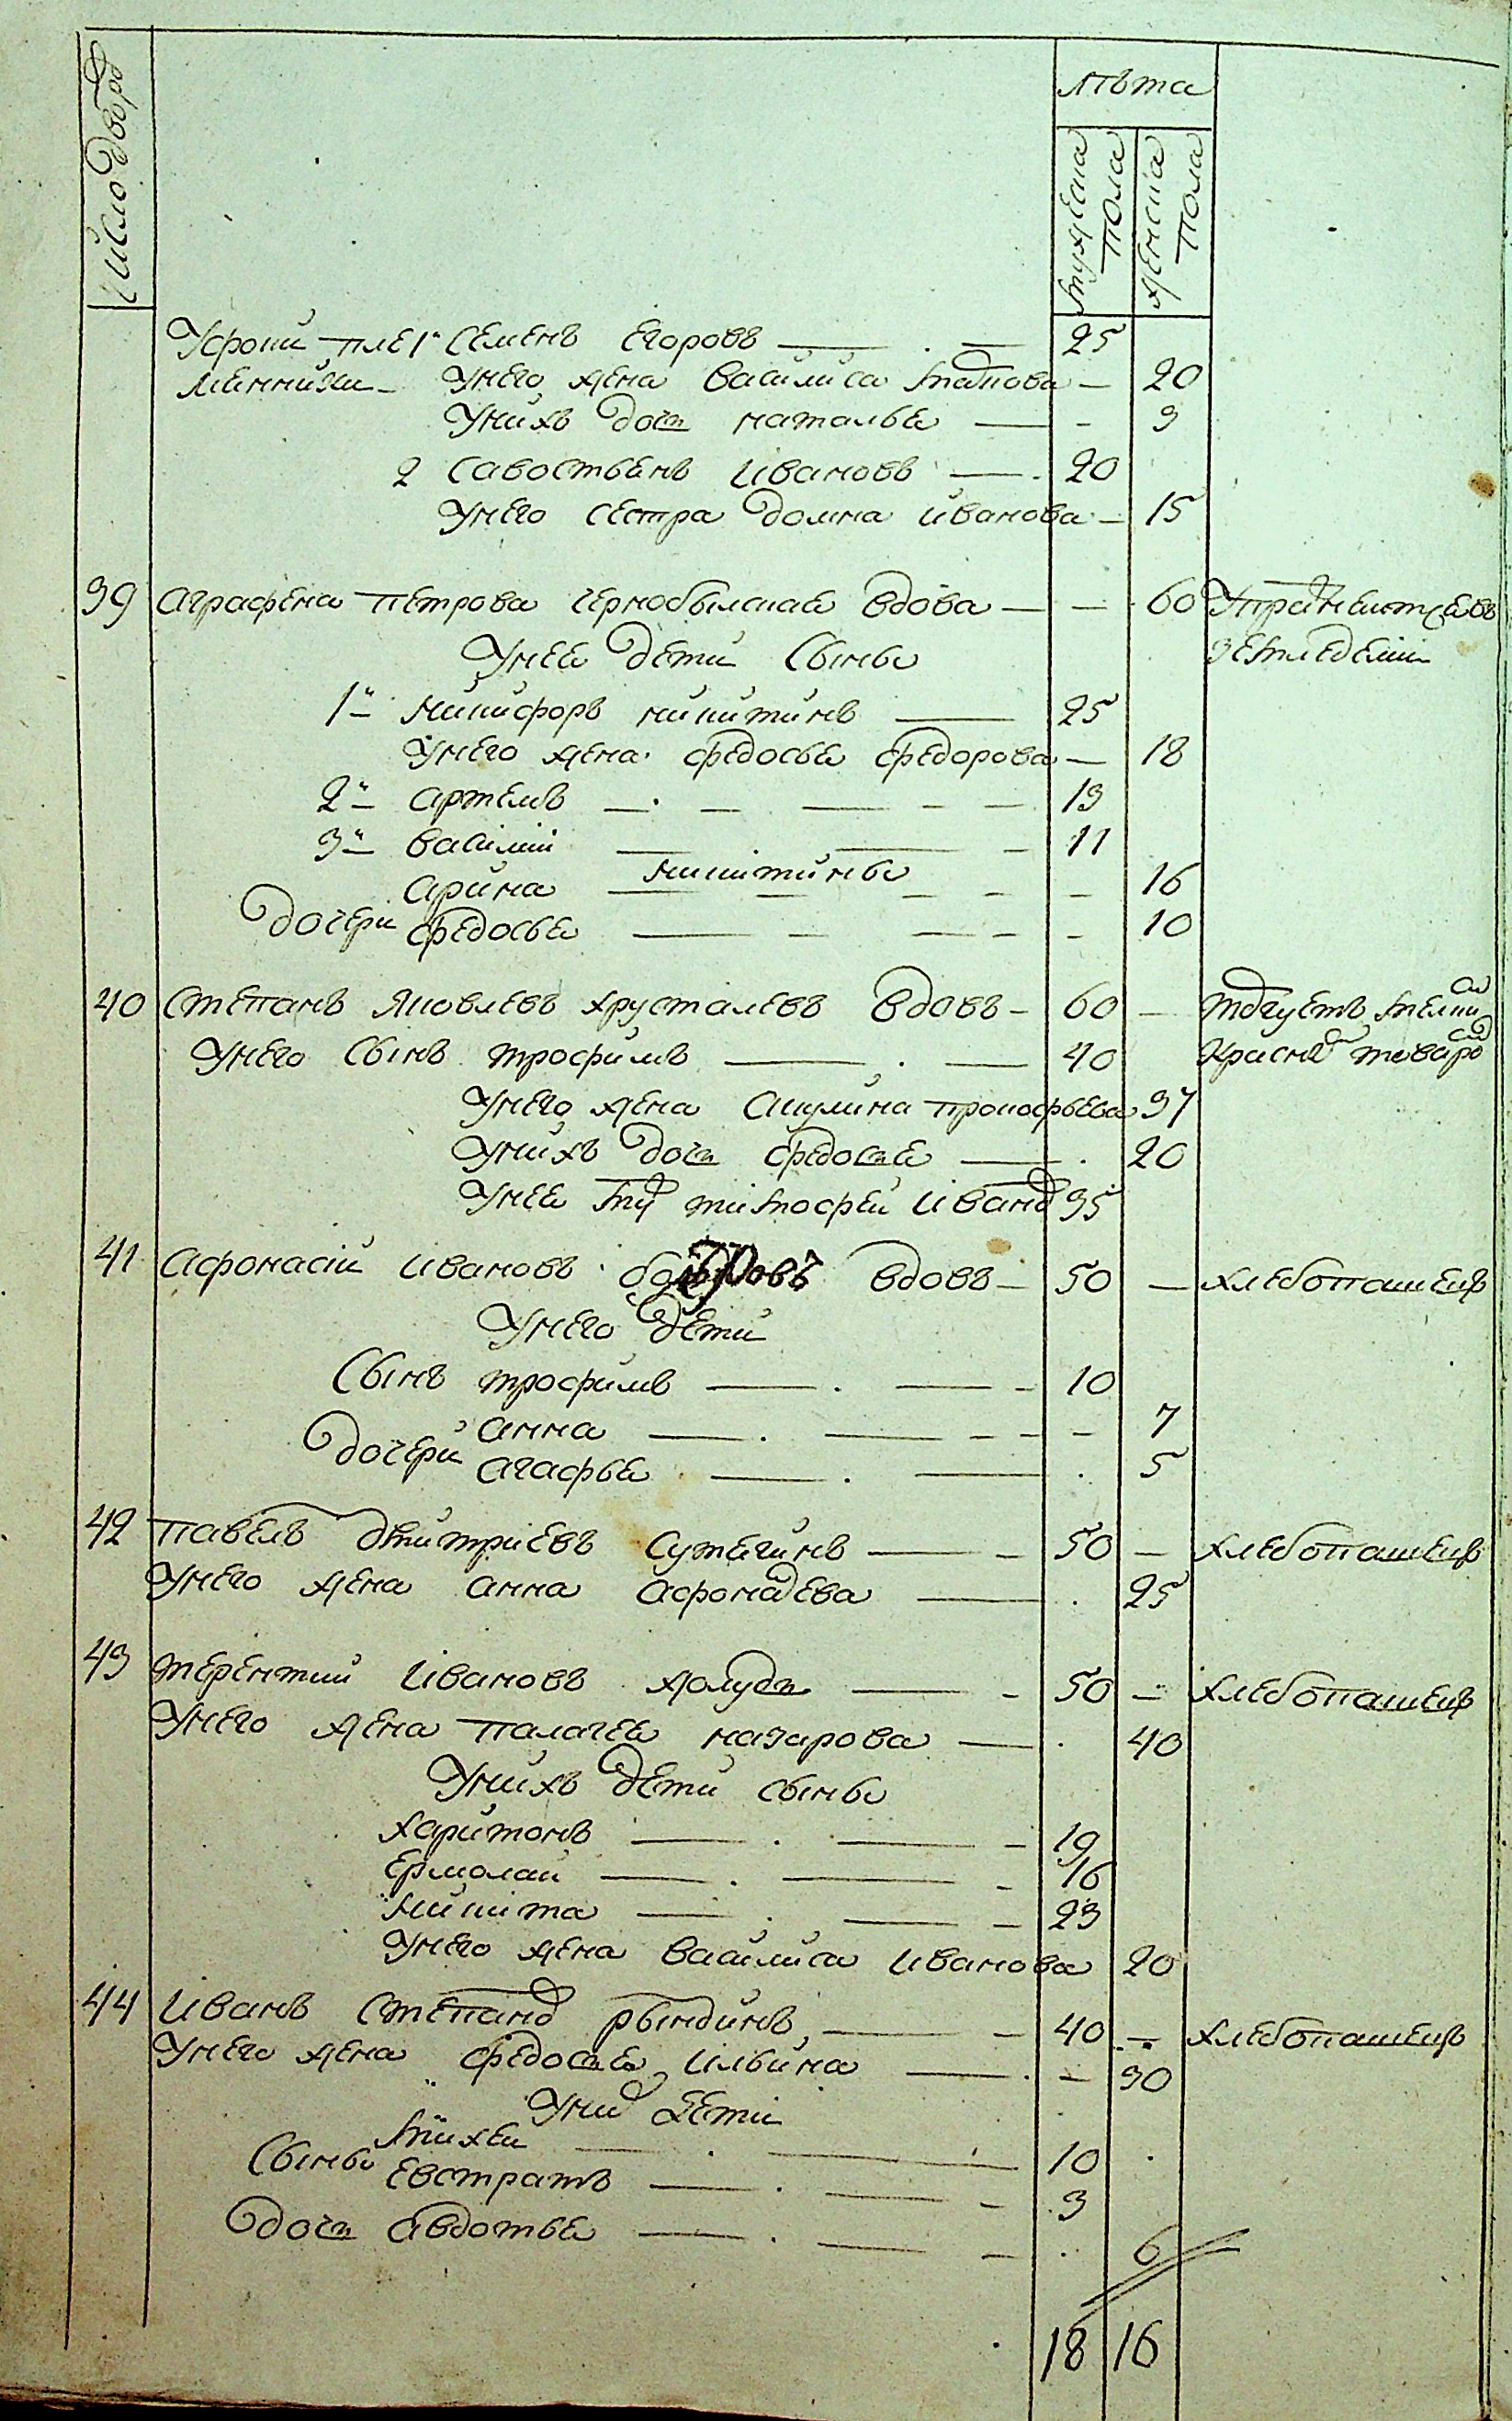 Число дворо
лѣта
мужеска пола
женска пола
Уфрони пле 1 Семенъ Егоровъ 25
менники Унего жена василиса 20
Унихъ доч наталья 3
2 Савостьянъ Ивановъ 20
Унего сестра домна иванова 15
39 аграфена петрова чернобылская вдова 60
Унее дети Сыны земледелии
1й никифоръ никитинъ 25
Унего жена федосья федорова 18
2й артемъ 13
3й василий 11
никитины
арина 16
дочери федосья 10
40 степанъ яковлевъ хрусталевъ вдовъ 60 — торгуетъ мелки
Унего Сынъ трофимъ 40 красны товаро
Унего жена акулина прокофьева 37
Унихъ доч федосья 20
Унее му тимофей ивано 35
41 афонасій ивановъ вдовъ 50 — хлебопашецъ
Унего дети
Сынъ трофимъ 10
анна 7
дочери агафья 5
42 павелъ дмитриевъ Сутягинъ 50 — хлебопашецъ
Унего жена анна афонасева 25
43 терентии Ивановъ жолудь 50 — хлебопашецъ
Унего жена палагея назарова 40
Унихъ дети сыны
харитонъ 19
ермолаи 16
никита 23
Унего жена василиса иванова 20
44 Иванъ Степано рындинъ 40 — хлебопашецъ
Унего жена федосья ильина 30
Уни дети
михеи 10
Сыны евстратъ 3
доч авдотья 6
18 16